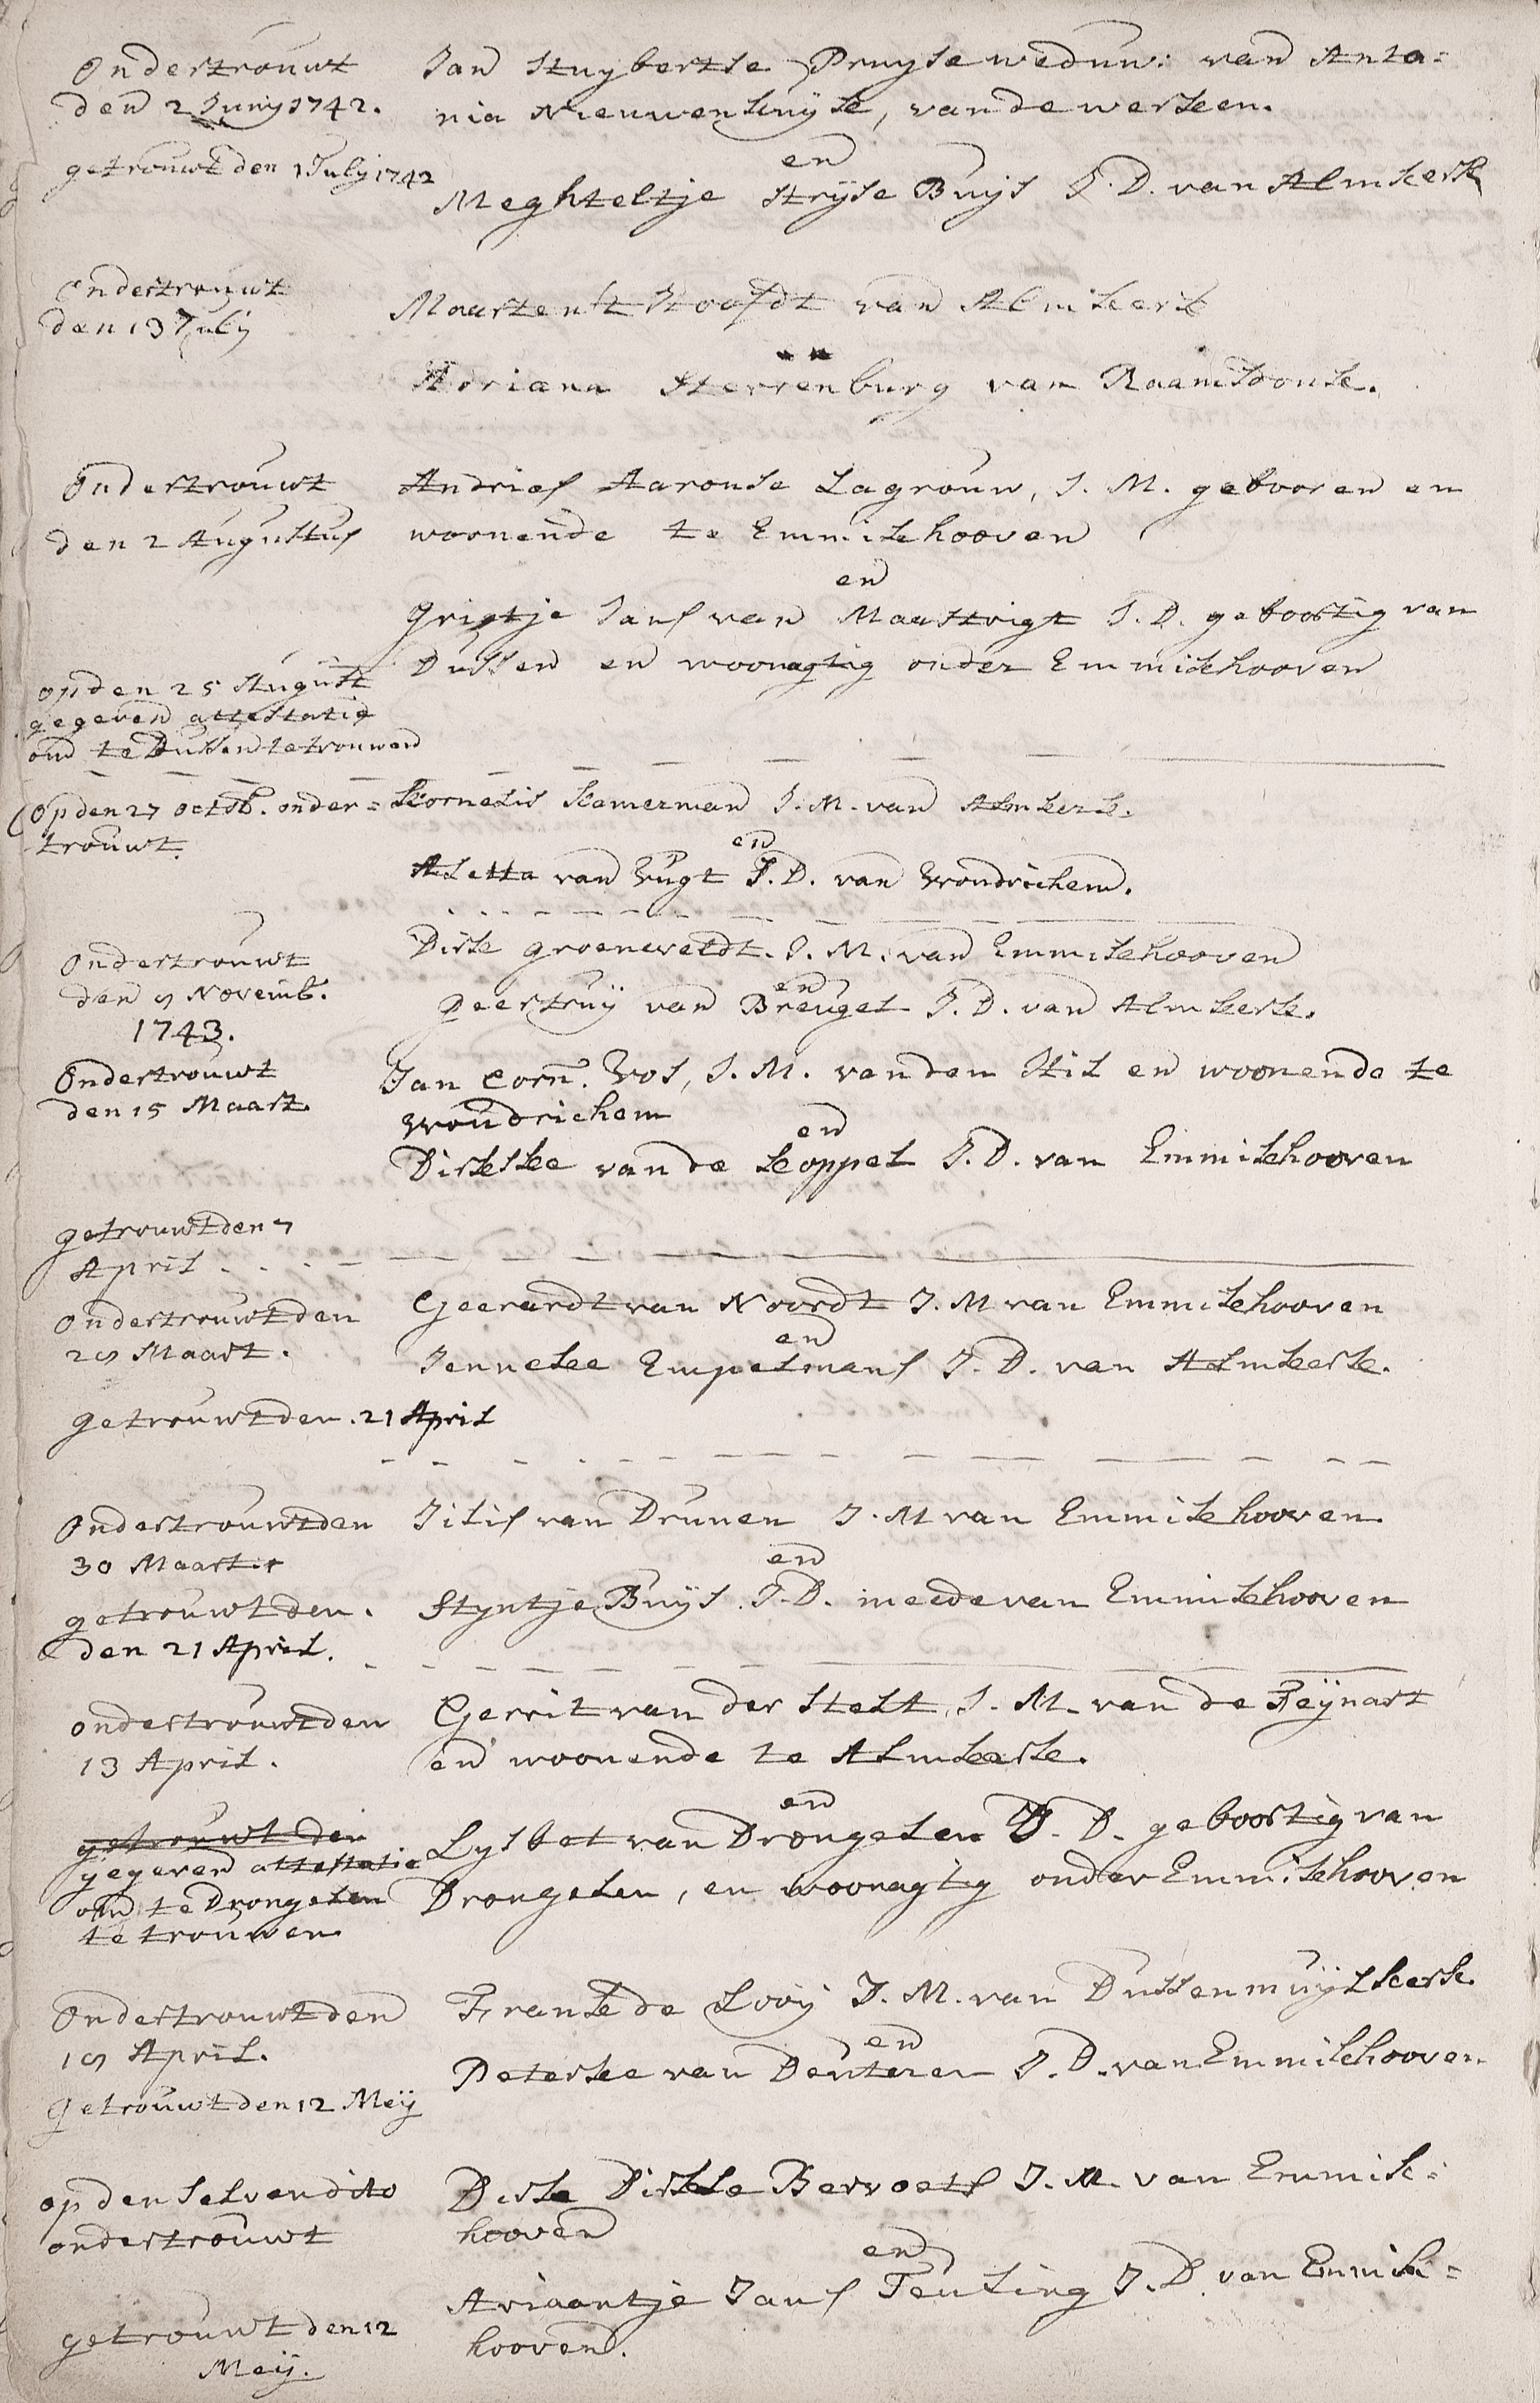 Ondertrouwt
den 2 Junij 1742.
getrouwt den 1 Julij 1742
Jan Huybertse Pruyse weduw: van Anto=
nia Nieuwenhuyse, van de werken.
en
Meghteltje Stryse Buijs J. D. van Almkerk
Ondertrouwt
den 13 Julij
Maarten 't Hoofdt van Almkerk
en
Adriana Sterrenburg van Raamsdonk.
Ondertrouwt
den 2 Augustus
Andries Aaronse Lagrouw, J. M. gebooren en
woonende te Emmikhooven
en
Grigtje Jans van Maastrigt J. D. geboortig van
Dussen en woonagtig onder Emmikhooven
op den 25 August
gegeven attestatie
om te Dussen te trouwen
Op den 27 Octob. onder=
trouwt.
Kornelis Kamerman J. M. van Almkerk.
en
Aletta van Vugt J. D. van Woudrichem.
Ondertrouwt
den 9 Novemb.
1743.
Dirk Groeneveldt. J. M. van Emmikhooven
en
Geertruij van Breugel J. D. van Almkerk.
Ondertrouwt
den 15 Maart.
Jan Corn. Vos, J. M. van den Hil en woonende te
Woudrichem
en
Dirkske van de Koppel J. D. van Emmikhooven
getrouwt den 7
April
Ondertrouwt den
29 Maart.
Geerardt van Noordt J. M van Emmikhooven
en
Jenneke Empelmans J. D. van Almkerk.
getrouwt den. 21 April
Ondertrouwt den
30 Maart
Jilis van Drunen J. M van Emmikhooven.
en
getrouwt den.
den 21 April.
Styntje Buijs J. D. meede van Emmikhooven
ondertrouwt den
13 April.
Gerrit van der Stelt, J. M. van de Peijnart
en woonende te Almkerk.
en
getrouwt den
gegeven attestatie
om te Drongelen
te trouwen
Lysbet van Drongelen J. D. geboortig van
Drongelen, en woonagtig onder Emmikhooven
Ondertrouwt den
19 April.
Getrouwt den 12 Meij
Frank de Looij J. M. van Dussenmuijlkerk
en
Peterke van Deuteren J. D. van Emmikhooven
op den selven dito
ondertrouwt
Dirk Dirkse Bervoets J. M. van Emmik=
hooven
en
getrouwt den 12
Meij.
Ariaantje Jans Teuling J. D. van Emmik=
hooven.